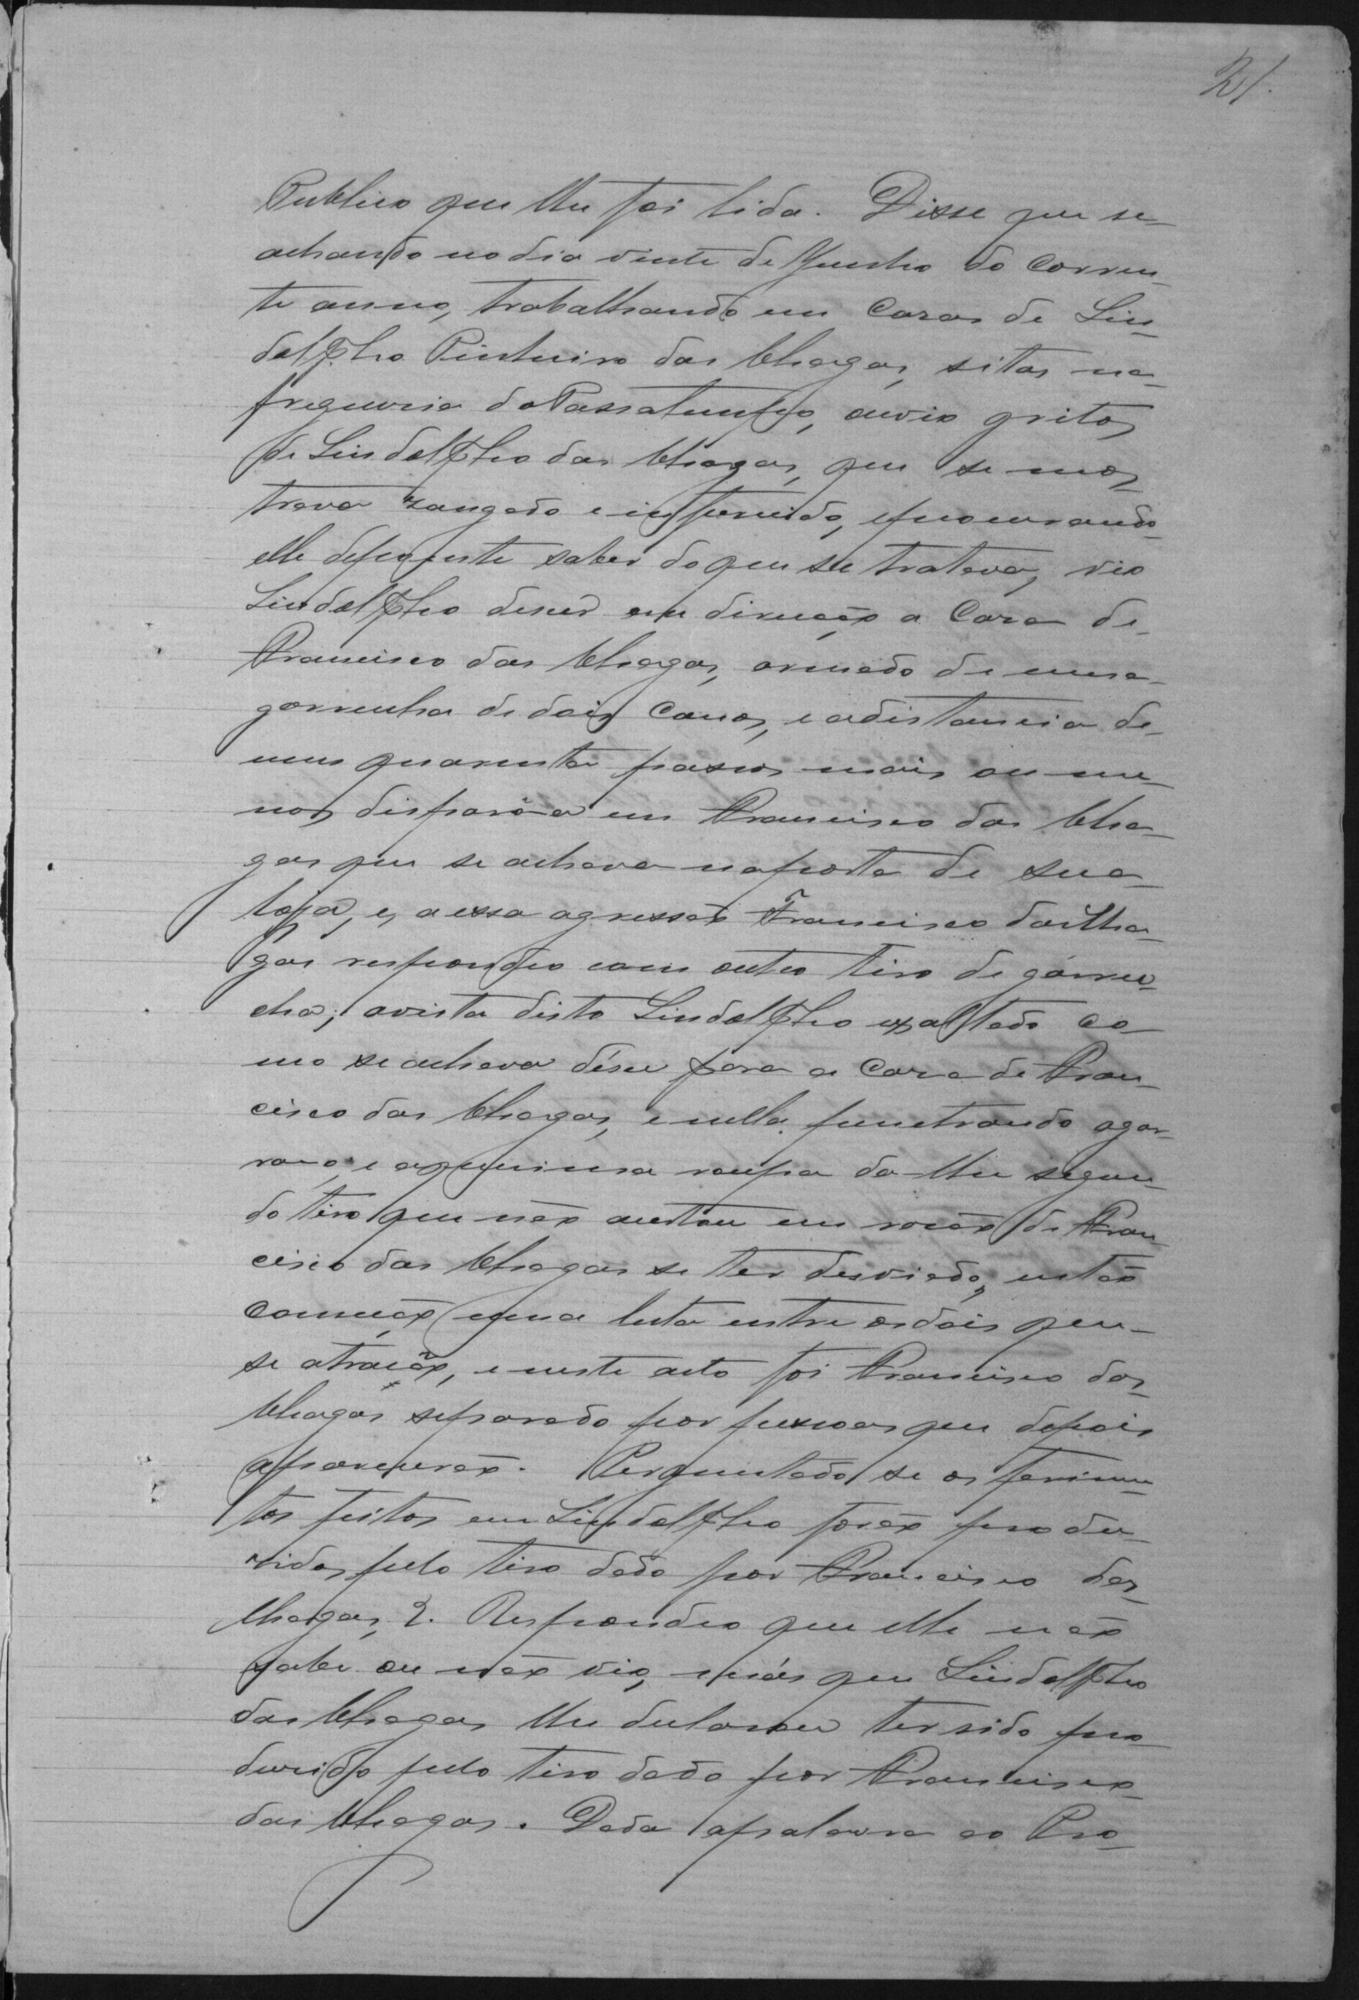 21.
Publico que lhe foi lida. Disse que se
achando no dia vinte de Junho do corren-
te anno, trabalhando em casas de Lin-
dolpho Pinheiro das Chagas, sitas na
freguezia do Passatempo, ouvio gritos
de Lindolpho das Chagas, que se mos-
trava zangado e enfurecido, e procurando
elle depoente saber do que se tratava, vio
Lindolpho descer em direcção a casa de
Francisco das Chagas, armado de uma
garrucha de dois canos, e a distancia de
uns quarenta passos mais ou me-
nos disparou-a em Francisco das Cha-
gas que se achava na porta de sua
loja, e, a essa agressão Francisco das Cha-
gas respondeo com outro tiro de garru-
cha; a vista disto Lindolpho exaltado co-
mo se achava desce para a casa de Fran-
cisco das Chagas, e nella penetrando agar-
rou-o e a queima roupa da-lhe segun-
do tiro que não acertou em rasão de Fran-
cisco das Chagas se ter desviado, então
começão uma luta entre os dois que
se atracão, e neste acto foi Francisco das
Chagas separado por pessoas que depois
aparecerão. Perguntado se os ferimen-
tos feitos em Lindolpho forão produ-
zidos pelo tiro dado por Francisco das
Chagas? Respondeo que elle não
sabe ou não vio, mas que Lindolpho
das Chagas lhe declarou ter sido pro
duzido pelo tiro dado por Francisco
das Chagas. Dada a palavra ao Pro-